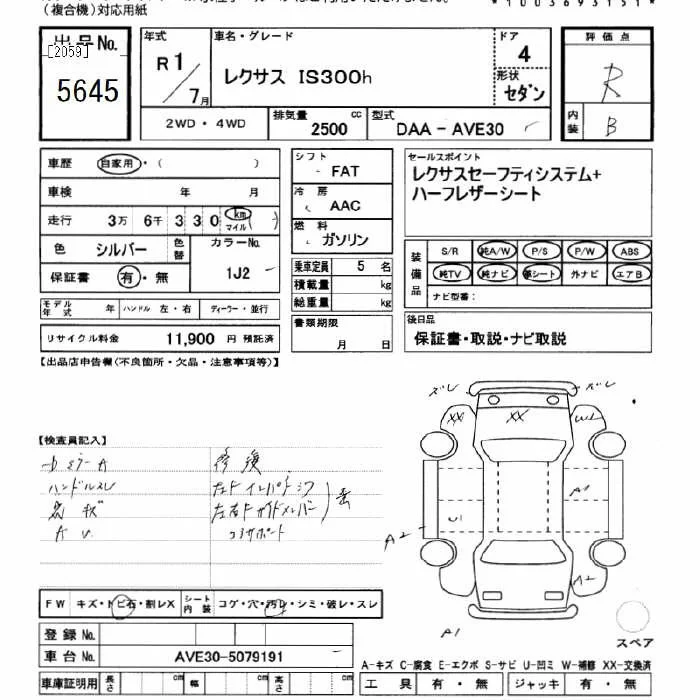 （複合機）対応用紙
*1003693151*
出品No.
[2059]
5645
年式
R1/7月
車名・グレード
レクサス IS300h
ドア
4
形状
セダン
評価点
R
内装
B
2WD・4WD
排気量
2500 cc
型式
DAA-AVE30
車歴 自家用・（ ）
車検 年 月
走行 3万 6千 3 3 0 km マイル（ ）
色 シルバー
色替
カラーNo.
1J2
保証書 有・無
シフト
FAT
冷房
AAC
燃料
ガソリン
乗車定員 5 名
積載量 kg
総重量 kg
セールスポイント
レクサスセーフティシステム+
ハーフレザーシート
装備品
S/R 純A/W P/S P/W ABS
純TV 純ナビ 革シート 外ナビ エアB
ナビ型番：
モデル年式 年 ハンドル 左・右 ディーラー・並行
リサイクル料金 11,900 円 預託済
書類期限
月 日
後日品
保証書・取説・ナビ取説
【出品店申告欄(不良箇所・欠品・注意事項等)】
【検査員記入】
ハンドルスレ
修復
左F インパネ
左右F サイドメンバー
コアサポート
ズレ
ズレ
XX
XX
W2
U1
A1
A2
A2
A1
FW キズ・トビ石・割レX
シート内装 コゲ・穴・汚レ・シミ・破レ・スレ
登録No.
車台No. AVE30-5079191
車庫証明用 長さ cm 幅 cm 高さ cm
スペア
A-キズ C-腐食 E-エクボ S-サビ U-凹ミ W-補修 XX-交換済
工具 有・無 ジャッキ 有・無